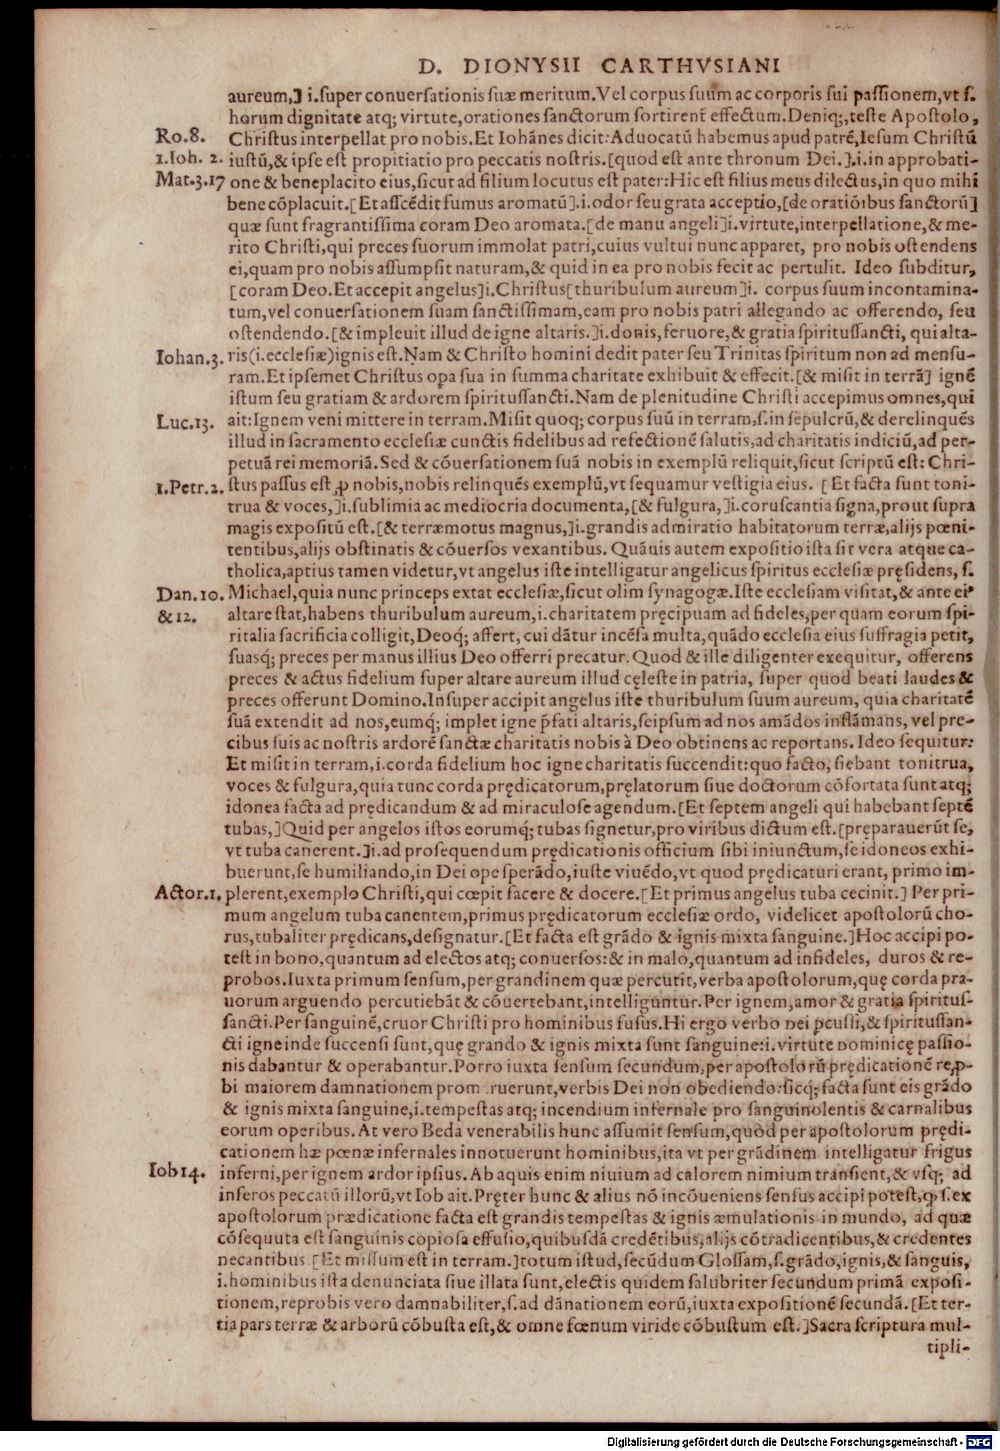 D. DIONYSII CARTHVSIANI
aureum,] i.super conuersationis suæ meritum.Vel corpus suum ac corporis sui passionem,vt s.
horum dignitate atq; virtute,orationes sanctorum sortirent effectum.Deniq;,teste Apostolo,
Ro.8. Christus interpellat pro nobis.Et Iohānes dicit:Aduocatū habemus apud patrē,Iesum Christū
1.Ioh. 2. iustū,& ipse est propitiatio pro peccatis nostris.[quod est ante thronum Dei.].i.in approbati-
Mat.3.17 one & beneplacito eius,sicut ad filium locutus est pater:Hic est filius meus dilectus,in quo mihi
bene cōplacuit.[Et ascēdit fumus aromatū].i.odor seu grata acceptio,[de oratiōibus sanctorū]
quæ sunt fragrantissima coram Deo aromata.[de manu angeli]i.virtute,interpellatione,& me-
rito Christi,qui preces suorum immolat patri,cuius vultui nunc apparet, pro nobis ostendens
ei,quam pro nobis assumpsit naturam,& quid in ea pro nobis fecit ac pertulit. Ideo subditur,
[coram Deo.Et accepit angelus]i.Christus[thuribulum aureum]i. corpus suum incontamina-
tum,vel conuersationem suam sanctissimam,eam pro nobis patri allegando ac offerendo, seu
ostendendo.[& impleuit illud de igne altaris.]i.donis,feruore,& gratia spiritussancti, qui alta-
Iohan.3. ris(i.ecclesiæ)ignis est.Nam & Christo homini dedit pater seu Trinitas spiritum non ad mensu-
ram.Et ipsemet Christus oꝑa sua in summa charitate exhibuit & effecit.[& misit in terrā] ignē
istum seu gratiam & ardorem spiritussancti.Nam de plenitudine Christi accepimus omnes,qui
Luc.13. ait:Ignem veni mittere in terram.Misit quoq; corpus suū in terram,s.in sepulcrū,& derelinquēs
illud in sacramento ecclesiæ cunctis fidelibus ad refectionē salutis,ad charitatis indiciū,ad per-
petuā rei memoriā.Sed & cōuersationem suā nobis in exemplū reliquit,sicut scriptū est: Chri-
1.Petr.2. stus passus est ꝓ nobis,nobis relinquēs exemplū,vt sequamur vestigia eius. [Et facta sunt toni-
trua & voces,]i.sublimia ac mediocria documenta,[& fulgura,]i.coruscantia signa,prout supra
magis expositū est.[& terræmotus magnus,]i.grandis admiratio habitatorum terræ,alijs pœni-
tentibus,alijs obstinatis & cōuersos vexantibus. Quāuis autem expositio ista sit vera atque ca-
tholica,aptius tamen videtur,vt angelus iste intelligatur angelicus spiritus ecclesiæ pręsidens, s.
Dan.10. Michael,quia nunc princeps extat ecclesiæ,sicut olim synagogæ.Iste ecclesiam visitat,& ante ei⁹
&12. altare stat,habens thuribulum aureum,i.charitatem pręcipuam ad fideles,per quam eorum spi-
ritalia sacrificia colligit,Deoq; affert, cui dātur incēsa multa,quādo ecclesia eius suffragia petit,
suasq; preces per manus illius Deo offerri precatur.Quod & ille diligenter exequitur, offerens
preces & actus fidelium super altare aureum illud cęleste in patria, super quod beati laudes &
preces offerunt Domino.Insuper accipit angelus iste thuribulum suum aureum, quia charitatē
suā extendit ad nos,eumq; implet igne p̄fati altaris,seipsum ad nos amādos inflāmans, vel pre-
cibus suis ac nostris ardorē sanctæ charitatis nobis à Deo obtinens ac reportans. Ideo sequitur:
Et misit in terram,i.corda fidelium hoc igne charitatis succendit:quo facto, fiebant tonitrua,
voces & fulgura,quia tunc corda prędicatorum,pręlatorum siue doctorum cōfortata sunt atq;
idonea facta ad prędicandum & ad miraculose agendum.[Et septem angeli qui habebant septē
tubas,]Quid per angelos istos eorumq; tubas signetur,pro viribus dictum est.[pręparauerūt se,
vt tuba canerent.]i.ad prosequendum prędicationis officium sibi iniunctum,se idoneos exhi-
buerunt,se humiliando,in Dei ope sperādo,iuste viuēdo,vt quod prędicaturi erant, primo im-
Actor.1. plerent,exemplo Christi,qui cœpit facere & docere.[Et primus angelus tuba cecinit.] Per pri-
mum angelum tuba canentem,primus prędicatorum ecclesiæ ordo, videlicet apostolorū cho-
rus,tubaliter prędicans,designatur.[Et facta est grādo & ignis mixta sanguine.]Hoc accipi po-
test in bono,quantum ad electos atq; conuersos:& in malo,quantum ad infideles, duros & re-
probos.Iuxta primum sensum,per grandinem quæ percutit,verba apostolorum,quę corda pra-
uorum arguendo percutiebāt & cōuertebant,intelliguntur.Per ignem,amor & gratia spiritus-
sancti.Per sanguinē,cruor Christi pro hominibus fusus.Hi ergo verbo Dei ꝑcussi,& spiritussan-
cti igne inde succensi sunt,quę grando & ignis mixta sunt sanguine:i.virtute Dominicę passio-
nis dabantur & operabantur.Porro iuxta sensum secundum,per apostolorū prędicationē reꝓ-
bi maiorem damnationem promeruerunt,verbis Dei non obediendo:sicq; facta sunt eis grādo
& ignis mixta sanguine,i.tempestas atq; incendium infernale pro sanguinolentis & carnalibus
eorum operibus. At vero Beda venerabilis hunc assumit sensum,quòd per apostolorum prędi-
cationem hæ pœnæ infernales innotuerunt hominibus,ita vt per grādinem intelligatur frigus
Iob14. inferni,per ignem ardor ipsius. Ab aquis enim niuium ad calorem nimium transient,& vsq; ad
inferos peccatū illorū,vt Iob ait.Pręter hunc & alius nō incōueniens sensus accipi potest,ꝙ s.ex
apostolorum prædicatione facta est grandis tempestas & ignis æmulationis in mundo, ad quæ
cōsequuta est sanguinis copiosa effusio,quibusdā credētibus,alijs cōtradicentibus,& credentes
necantibus.[Et missum est in terram.]totum istud,secūdum Glossam,s.grādo,ignis,& sanguis,
i.hominibus ista denunciata siue illata sunt,electis quidem salubriter secundum primā exposi-
tionem,reprobis vero damnabiliter,s.ad dānationem eorū,iuxta expositionē secundā.[Et ter-
tia pars terræ & arborū cōbusta est,& omne fœnum viride cōbustum est.]Sacra scriptura mul-
tipli-
Digitalisierung gefördert durch die Deutsche Forschungsgemeinschaft - DFG